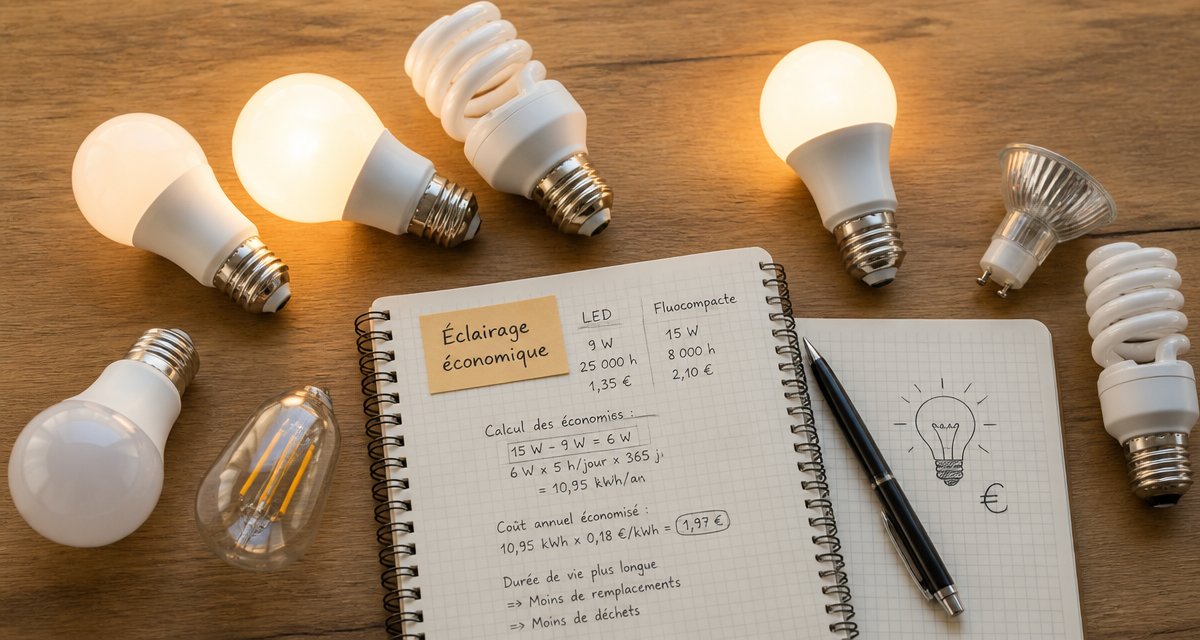 Éclairage
économique
LED
9 W
25 000 h
1,35 €
Fluocompacte
15 W
8 000 h
2,10 €
Calcul des économies :
15 W – 9 W = 6 W
6 W x 5 h/jour x 365 j
= 10,95 kWh/an
Coût annuel économisé :
10,95 kWh x 0,18 €/kWh = 1,97 €
Durée de vie plus longue
=> Moins de remplacements
=> Moins de déchets
€